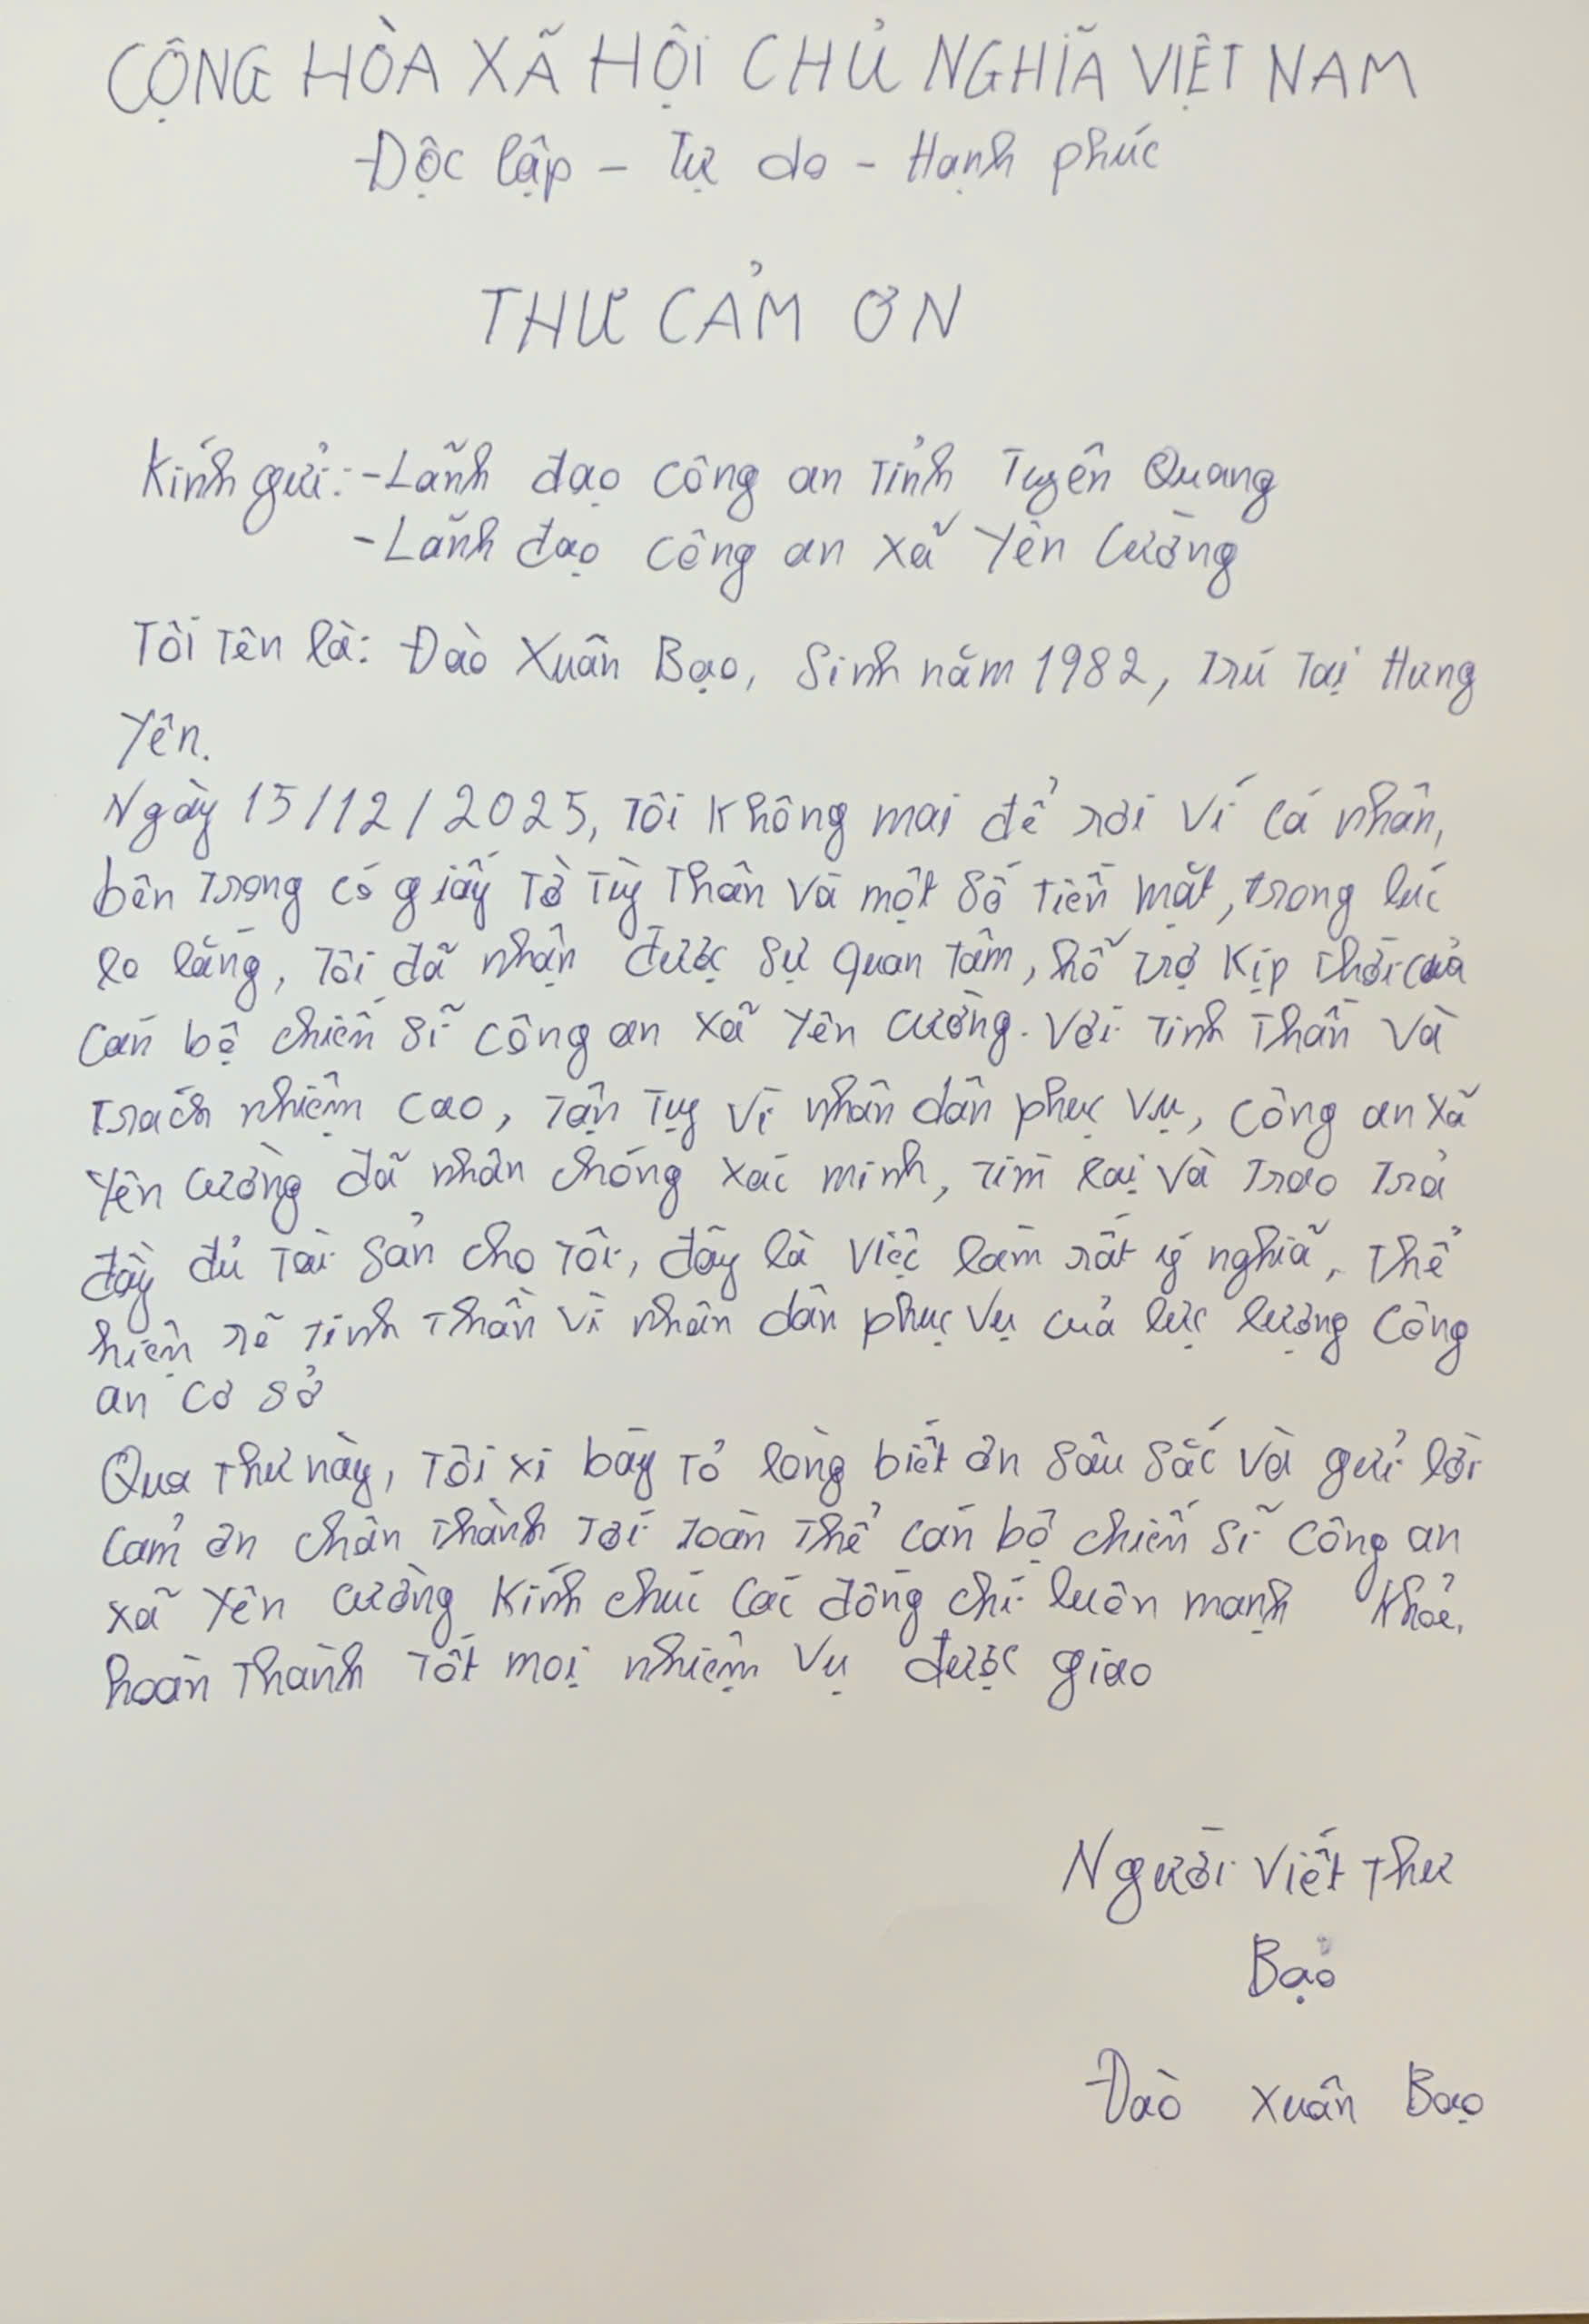 CỘNG HÒA XÃ HỘI CHỦ NGHĨA VIỆT NAM
Độc lập - Tự do - Hạnh phúc
THƯ CẢM ƠN
Kính gửi: - Lãnh đạo công an tỉnh Tuyên Quang
- Lãnh đạo công an xã Yên Cường
Tôi tên là: Đào Xuân Bạo, Sinh năm 1982, trú tại Hưng
Yên.
Ngày 15/12/2025, tôi không mai để rơi ví cá nhân,
bên trong có giấy tờ tùy thân và một số tiền mặt, trong lúc
lo lắng, tôi đã nhận được sự quan tâm, hỗ trợ kịp thời của
cán bộ chiến sĩ công an xã Yên Cường. Với tinh thần và
trách nhiệm cao, tận tụy vì nhân dân phục vụ, công an xã
Yên Cường đã nhân chóng xác minh, tìm lại và trao trả
đầy đủ tài sản cho tôi, đây là việc làm rất ý nghĩa, thể
hiện rõ tinh thần vì nhân dân phục vụ của lực lượng công
an cơ sở
Qua thư này, tôi xi bày tỏ lòng biết ơn sâu sắc và gửi lời
cảm ơn chân thành tới toàn thể cán bộ chiến sĩ công an
xã Yên Cường kính chúc các đồng chí luôn mạnh khỏe,
hoàn thành tốt mọi nhiệm vụ được giao
Người viết thư
Bạo
Đào Xuân Bạo